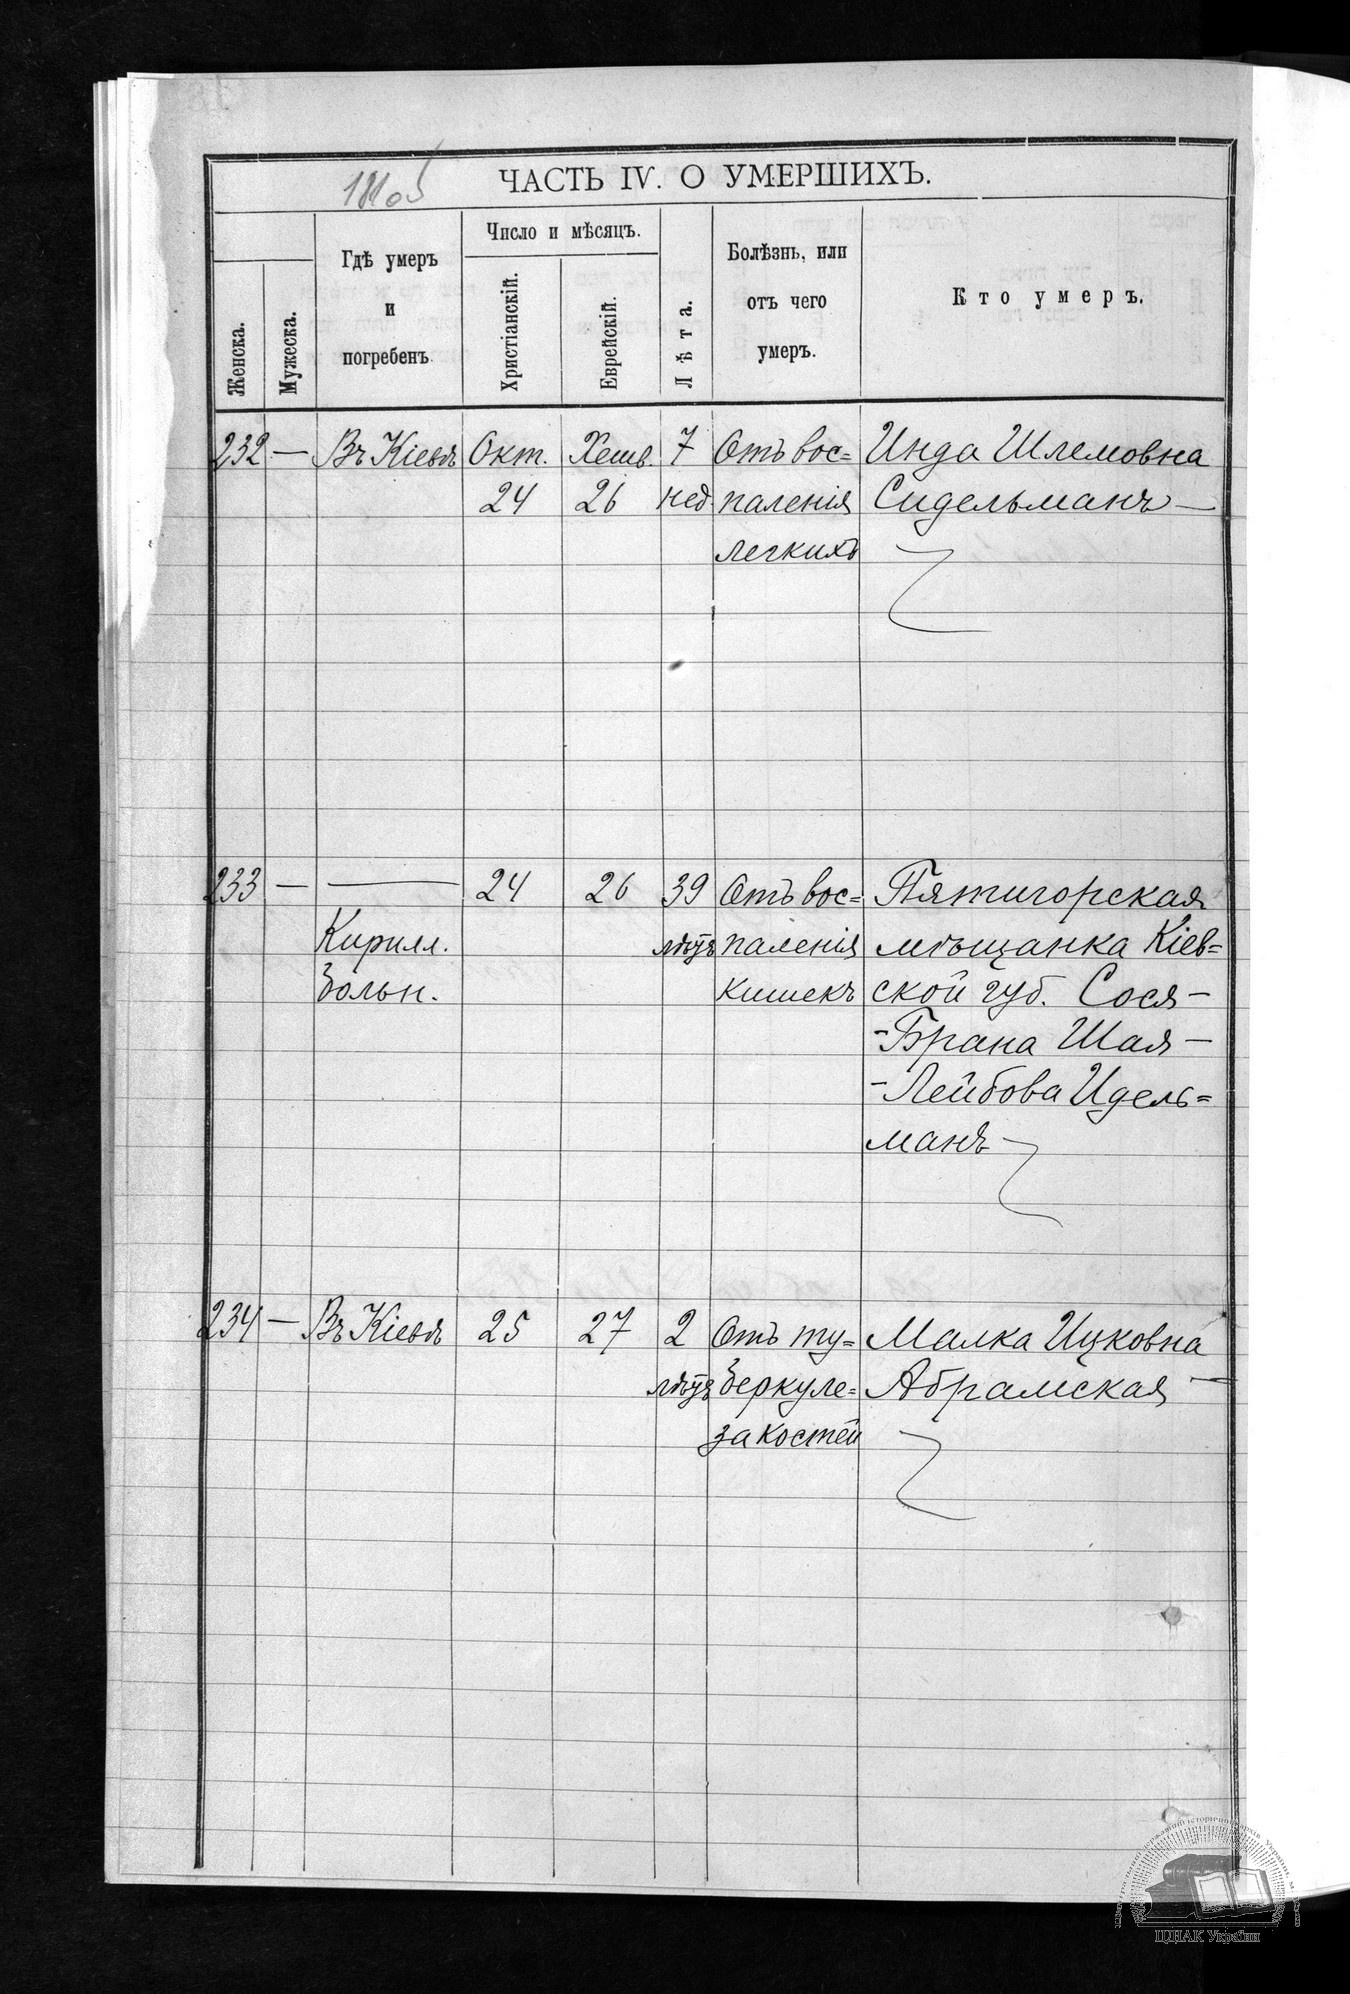 ЧАСТЬ IV. О УМЕРШИХЪ.
Женска.
Мужеска.
Гдѣ умеръ
и
погребенъ
Число и мѣсяцъ.
Христіанскій.
Еврейскій.
Лѣта.
Болѣзнь, или
отъ чего
умеръ.
Кто умеръ.
232 — Въ Кіевѣ Окт. Хешв. 7 Отъ вос= Инда Шлемовна
24 26 нед. паленія Сидельманъ —
легкихъ
233 — — 24 26 39 Отъ вос= Пятигорская
Кирилл. лѣтъ паленія мѣщанка Кіев=
больн. кишекъ ской губ. Сося —
- Брана Шая —
- Лейбова Идель=
манъ
234 — Въ Кіевѣ 25 27 2 Отъ ту= Малка Ицковна
лѣтъ беркуле= Абрамская —
за костей
ЦДІАК України